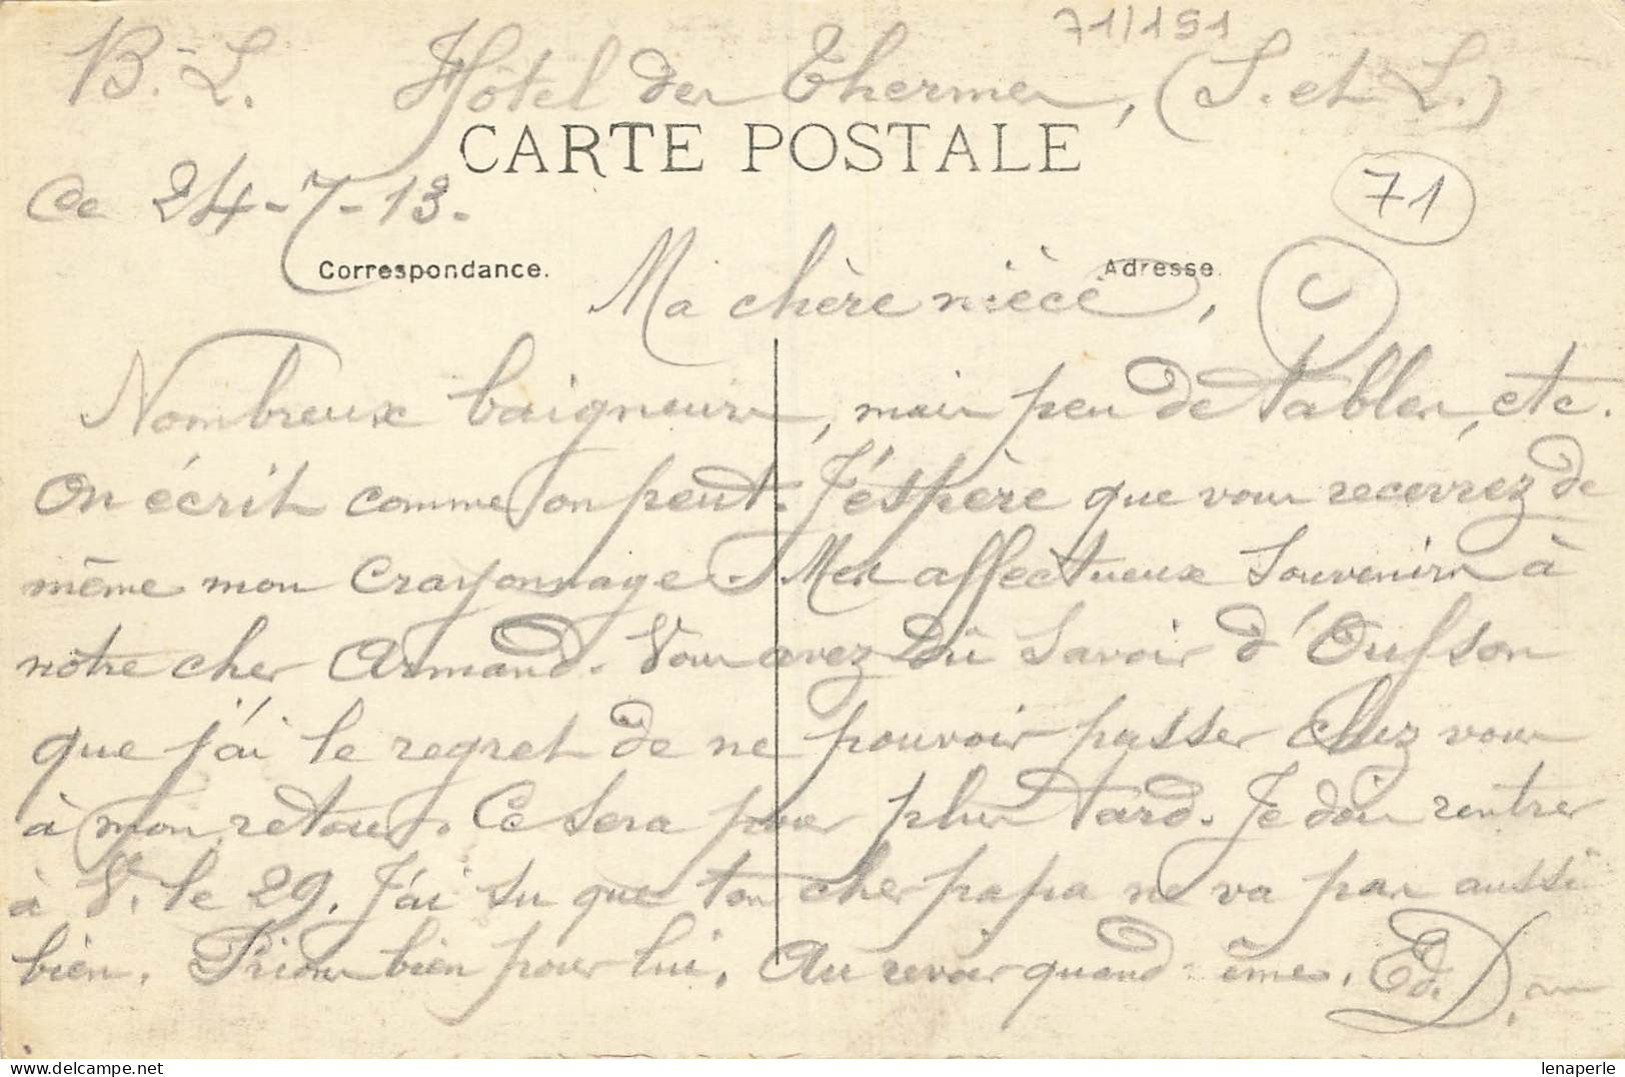 71/151
B.-L. Hôtel des Thermes, (S. et L.)
CARTE POSTALE
Ce 24-7-13.
71
Correspondance.
Adresse.
Ma chère nièce,
Nombreux baigneurs, mais peu de tables, etc.
On écrit comme on peut. J'éspère que vous recevrez de
même mon crayonnage. Mes affectueux souvenirs à
notre cher Armand. Vous avez dû savoir d'
que j'ai le regret de ne pouvoir passer chez vous
à mon retour. Ce sera pour plus tard. Je dois rentrer
à V. le 29. J'ai su que ton cher papa ne va pas aussi
bien. Prions bien pour lui. Au revoir quand-ême. Ed. D.
lenaperle